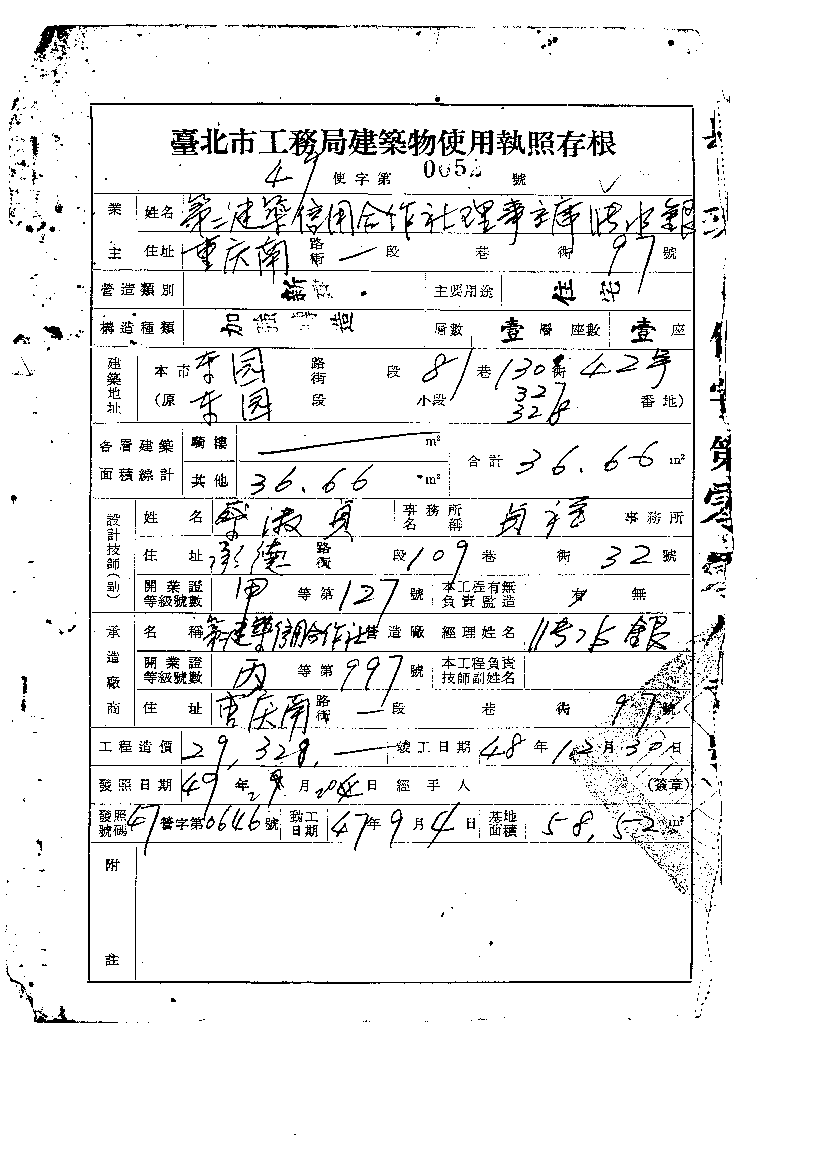 臺北市工務局建築物使用執照存根
49 使字第 0052 號
業 姓名 第二建築信用合作社理事主席
主 住址 重庆南 路街 一段 巷 衖 97 號
營造類別 新 主要用途 住宅
構造種類 加 造 層數 壹層 座數 壹座
建築地址 本市 东园 路街 段 81 巷 130 衖 42号
(原 东园 段 小段 327 328 番地)
各層建築面積總計 騎樓 m² 合計 36.66 m²
其他 36.66 m²
設計技師(副) 姓名 蔡淑貞 事務所名稱 貞祥 事務所
住址 承德 路街 段 109 巷 衖 32 號
開業證等級號數 甲 等第 127 號 本工程有無負責監造 有 無
承造廠商 名稱 第二建築信用合作社 營造廠 經理姓名
開業證等級號數 丙 等第 997 號 本工程負責技師副姓名
住址 重庆南 路街 一段 巷 衖 97 號
工程造價 29,328,— 竣工日期 48 年 12 月 30 日
發照日期 49 年 2 月 日 經手人 (簽章)
發照號碼 47 營字第 0646 號 動工日期 47 年 9 月 4 日 基地面積 58.52 m²
附註